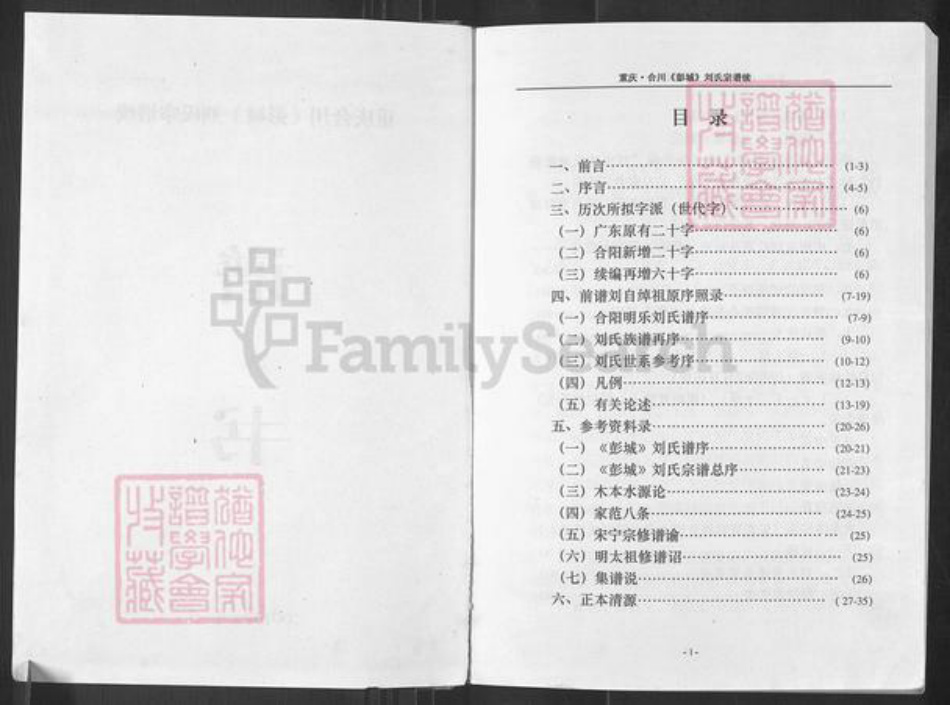 重庆·合川《彭城》刘氏宗谱续
目 录
一、前言……(1-3)
二、序言……(4-5)
三、历次所拟字派（世代字）……(6)
（一）广东原有二十字……(6)
（二）合阳新增二十字……(6)
（三）续编再增六十字……(6)
四、前谱刘自绰祖原序照录……(7-19)
（一）合阳明乐刘氏谱序……(7-9)
（二）刘氏族谱再序……(9-10)
（三）刘氏世系参考序……(10-12)
（四）凡例……(12-13)
（五）有关论述……(13-19)
五、参考资料录……(20-26)
（一）《彭城》刘氏谱序……(20-21)
（二）《彭城》刘氏宗谱总序……(21-23)
（三）木本水源论……(23-24)
（四）家范八条……(24-25)
（五）宋宁宗修谱谕……(25)
（六）明太祖修谱诏……(25)
（七）集谱说……(26)
六、正本清源……( 27-35)
-1-
FamilySearch